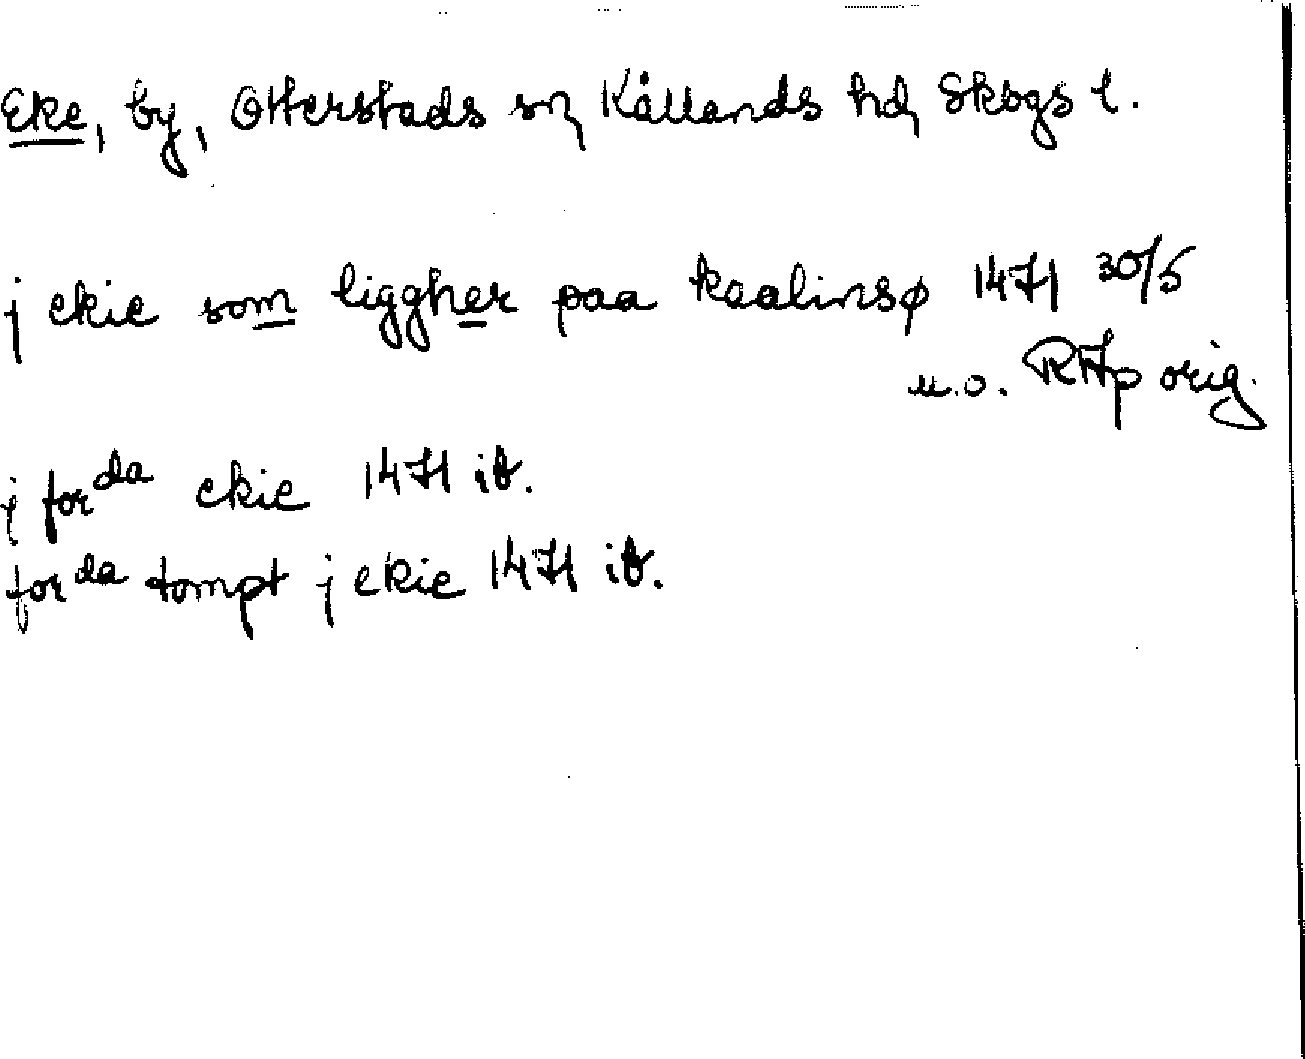 Eke, by, Otterstads sn, Kållands hd, Skogs l.
j ekie som liggher paa kaalinsø 1471 30/5
u.o. RAp orig.
j forda ekie 1471 ib.
forda tompt j ekie 1471 ib.